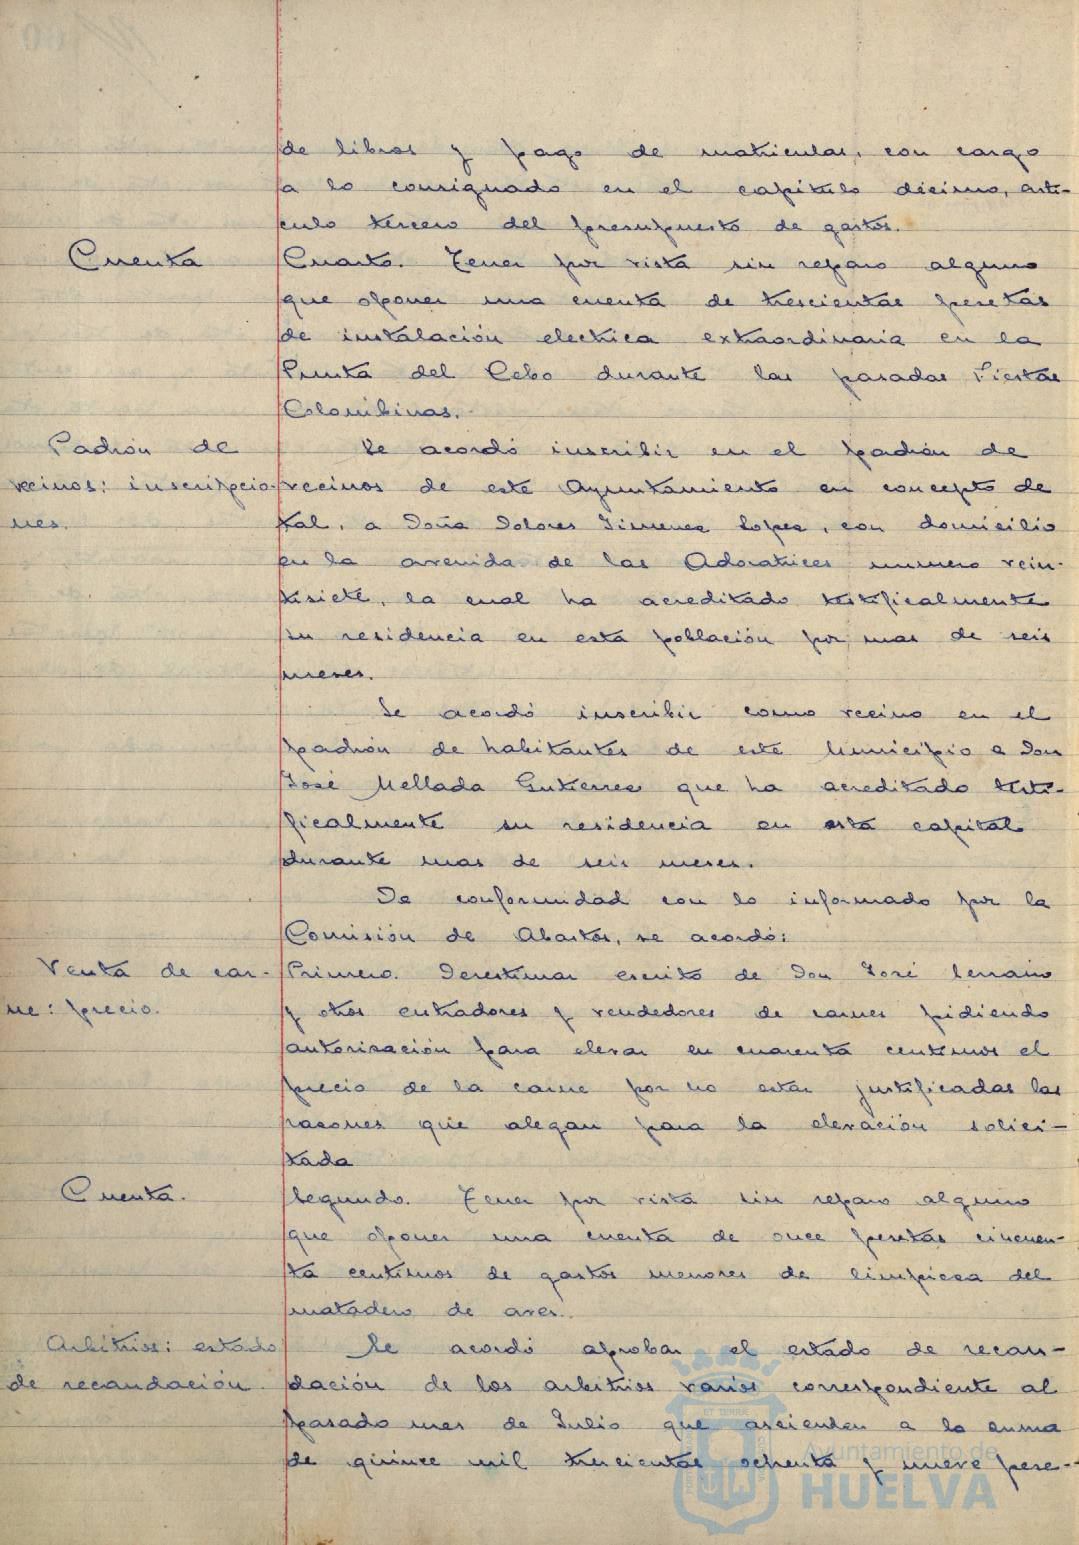 de libros y pago de matriculas, con cargo
a lo consignado en el capitulo décimo, arti-
culo tercero del presupuesto de gastos.
Cuenta
Cuarto. Tener por vista sin reparo alguno
que oponer una cuenta de trescientas pesetas
de instalación electrica extraordinaria en la
Punta del Cebo durante las pasadas Fiestas
Colombinas.
Padrón de
vecinos: inscripcio-
nes.
Se acordó inscribir en el padrón de
vecinos de este Ayuntamiento en concepto de
tal, a Doña Dolores Jimenez Lopez, con domicilio
en la avenida de las Adoratrices numero vein-
tisiete, la cual ha acreditado testificalmente
su residencia en esta población por mas de seis
meses.
Se acordó inscribir como vecino en el
padrón de habitantes de este Municipio a Don
José Mellada Gutierrez que ha acreditado testi-
ficalmente su residencia en esta capital
durante mas de seis meses.
De conformidad con lo informado por la
Comisión de Abastos, se acordó:
Venta de car-
ne: precio.
Primero. Desestimar escrito de Don José Serrano
y otros entradores y vendedores de carnes pidiendo
autorización para elevar en cuarenta centimos el
precio de la carne por no estar justificadas las
razones que alegan para la elevación solici-
tada
Cuenta.
Segundo. Tener por vista sin reparo alguno
que oponer una cuenta de once pesetas cincuen-
ta centimos de gastos menores de limpieza del
matadero de aves.
Arbitrios: estado
de recaudación
Se acordó aprobar el estado de recau-
dación de los arbitrios varios correspondiente al
pasado mes de Julio que ascienden a la suma
de quince mil trescientas ochenta y nueve pese-
Ayuntamiento de
HUELVA